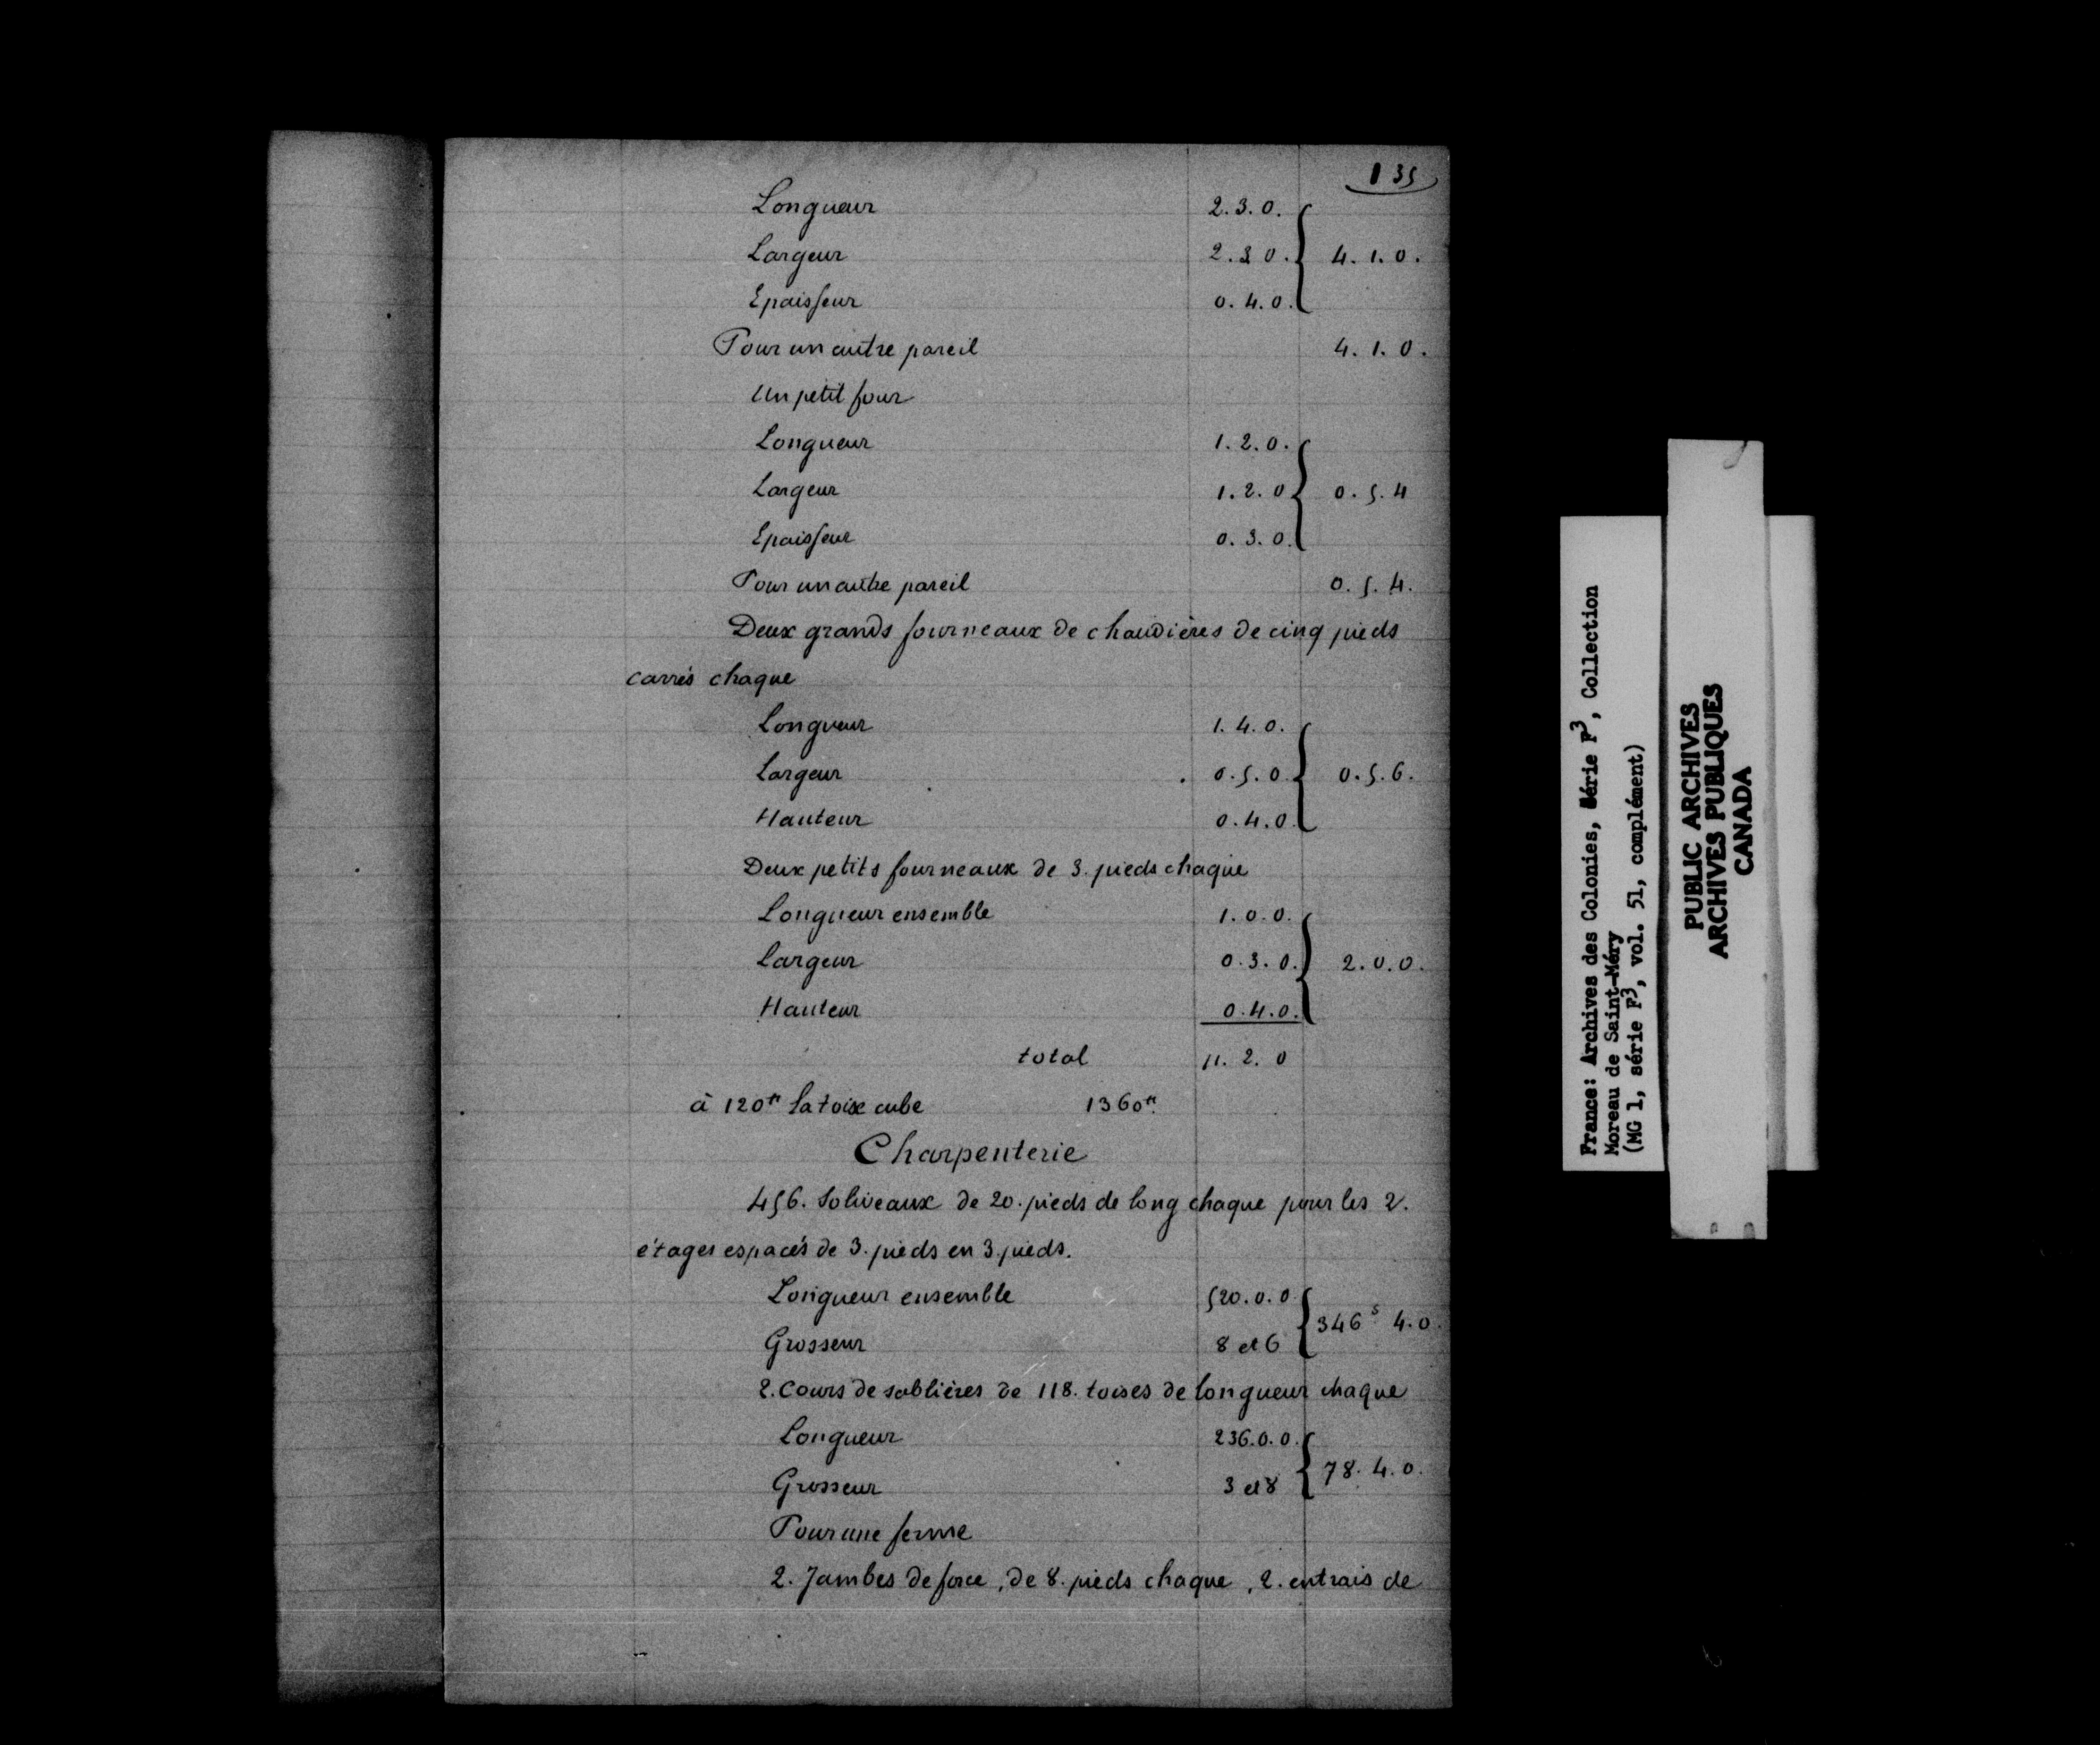 135
Longueur 2.3.0.
Largeur 2.3 0. 4.1.0.
Epaisseur 0.4.0.
Pour un autre pareil 4.1.0.
Un petit four
Longueur 1.2.0.
Largeur 1.2.0 0.5.4
Epaisseur 0.3.0.
Pour un autre pareil 0.5.4.
Deux grands fourneaux de chaudières de cinq pieds
carrés chaque
Longueur 1.4.0.
Largeur 0.5.0. 0.5.6.
Hauteur 0.4.0.
Deux petits fourneaux de 3. pieds chaque
Longueur ensemble 1.0.0.
Largeur 0.3.0. 2.0.0.
Hauteur 0.4.0.
total 11.2.0
à 120tt la toise cube 1360tt
Charpenterie
456. Soliveaux de 20. pieds de long chaque pour les 2.
étages espacés de 3. pieds en 3. pieds.
Longueur ensemble 520.0.0
Grosseur 8 et 6 346s 4.0.
2. Cours de sablières de 118. toises de longueur chaque
Longueur 236.0.0.
Grosseur 3 et 8 78.4.0.
Pour une ferme
2. Jambes de force, de 8. pieds chaque, 2. entrais de
France: Archives des Colonies, Série F3, Collection
Moreau de Saint-Méry
(MG 1, série F3, vol. 51, complément)
PUBLIC ARCHIVES
ARCHIVES PUBLIQUES
CANADA